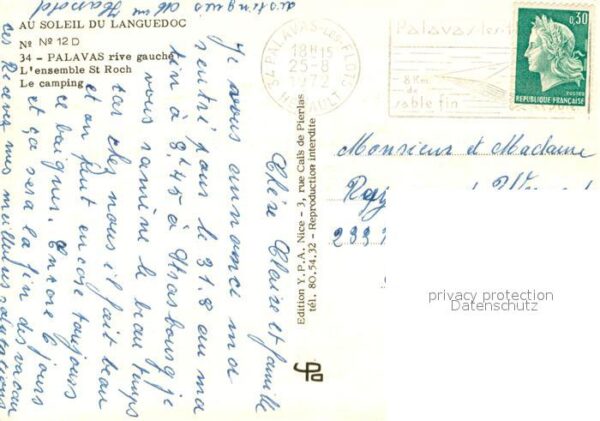 AU SOLEIL DU LANGUEDOC
No No 12 D
34 - PALAVAS rive gauche
L'ensemble St Roch
Le camping
Chère Claire et famille
Je vous annonci ma
rentré pour le 31.8 au ma
tin à 9h45 à Strasbourg je
vous ramène le beau temps
car chez nous il fait beau
et on peut encore toujours
ce baigner. Encore 6 jours
et ça sera la fin des vacan
ces Recevez mes meilleures salutations
Edition Y.P.A. Nice - 3, rue Caïs de Pierlas
tél. 80.54.32 - Reproduction interdite
34 PALAVAS-LES-FLOTS
18H15
25-8
HERAULT
Palavas-les-
8 Km
de
sable fin
0,30
REPUBLIQUE FRANÇAISE
POSTES
Monsieur et Madame
privacy protection
Datenschutz